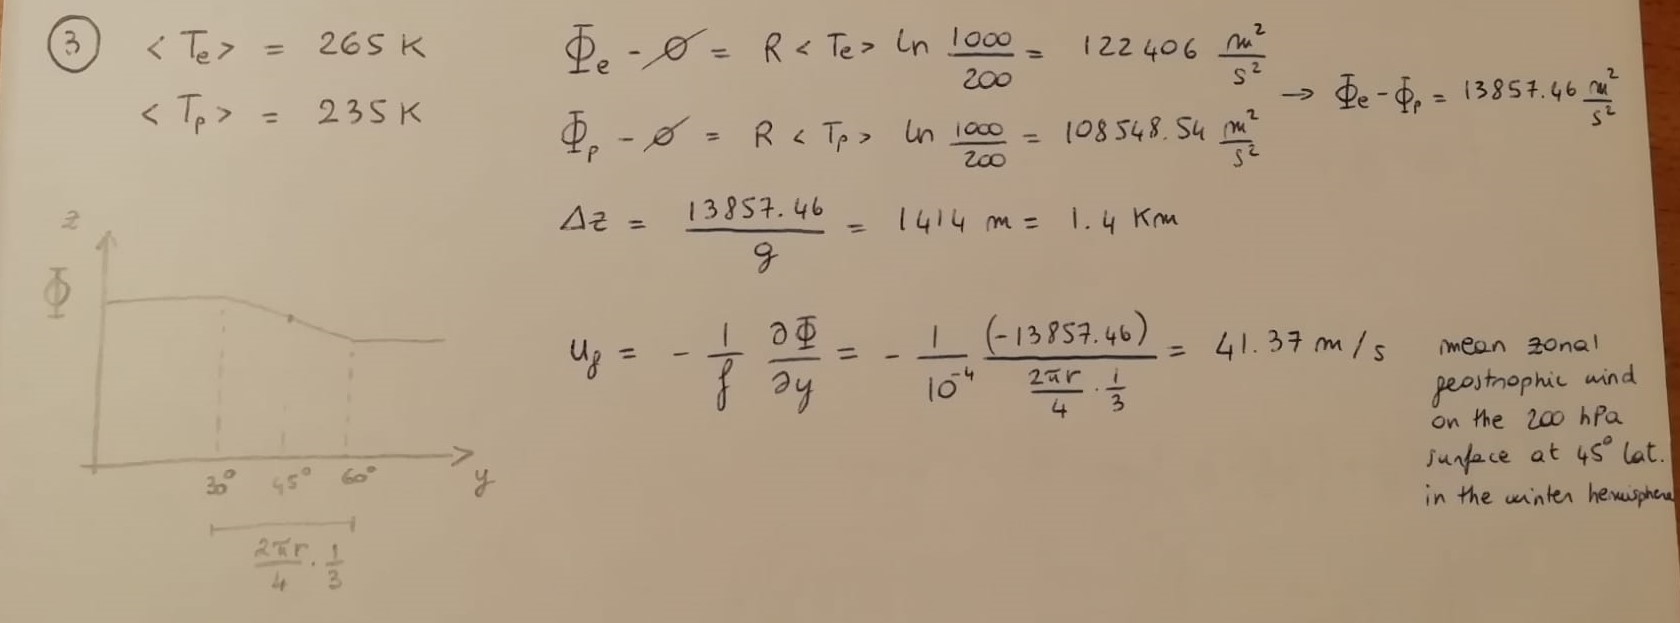 ③ <Te> = 265 K
<Tp> = 235 K
Φe - ∅ = R <Te> ln 1000/200 = 122 406 m²/s²
Φp - ∅ = R <Tp> ln 1000/200 = 108 548.54 m²/s²
→ Φe - Φp = 13857.46 m²/s²
Δz = 13857.46/g = 1414 m = 1.4 Km
ug = - 1/f ∂Φ/∂y = - 1/10⁻⁴ (-13857.46)/(2πr/4 · 1/3) = 41.37 m/s
mean zonal
geostrophic wind
on the 200 hPa
surface at 45° lat.
in the winter hemisphere
z
Φ
30° 45° 60° y
2πr/4 · 1/3